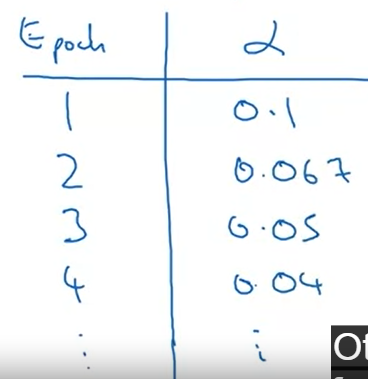 Epoch α
1 0.1
2 0.067
3 0.05
4 0.04
⋮ ⋮